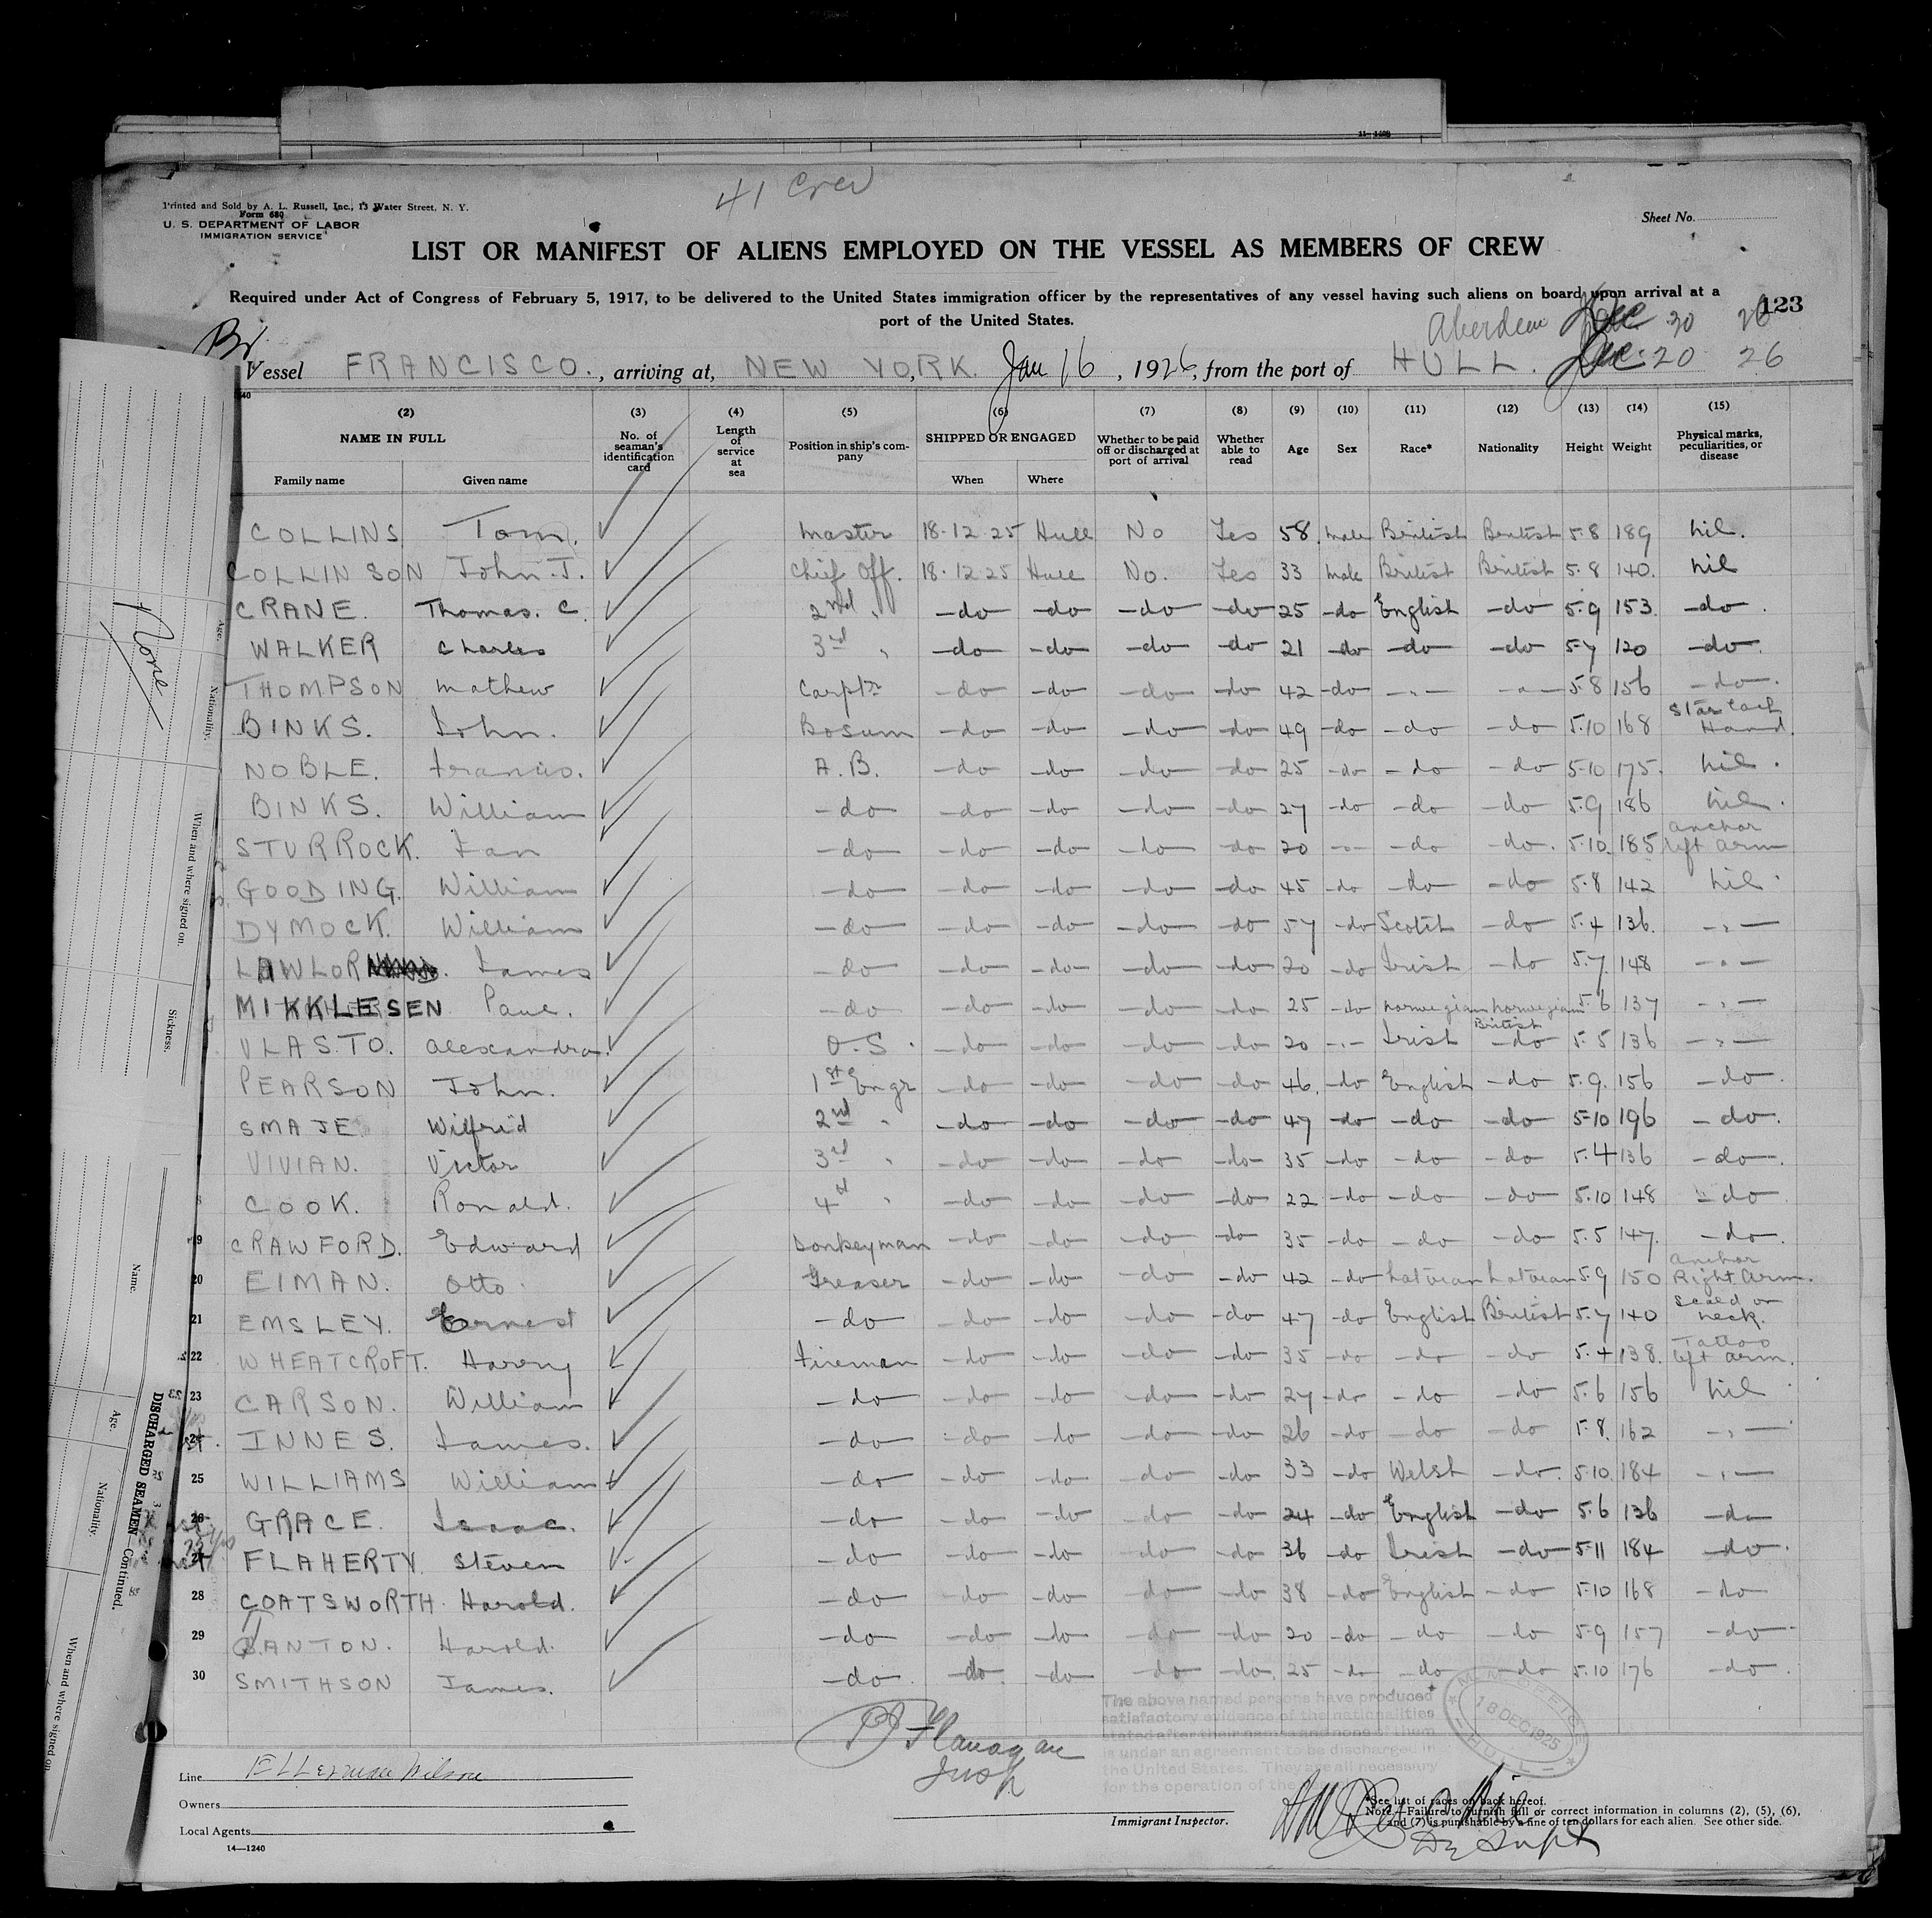 11-1498
41 Crew
Printed and Sold by A. L. Russell, Inc., 13 Water Street, N. Y.
Form 680
U. S. DEPARTMENT OF LABOR
IMMIGRATION SERVICE
Sheet No.
LIST OR MANIFEST OF ALIENS EMPLOYED ON THE VESSEL AS MEMBERS OF CREW
Required under Act of Congress of February 5, 1917, to be delivered to the United States immigration officer by the representatives of any vessel having such aliens on board upon arrival at a
port of the United States.
123
Aberdeen Dec 20 26
Br.
Vessel FRANCISCO., arriving at, NEW YORK Jan 16, 1926, from the port of HULL. Dec. 20 26
(2) (3) (4) (5) (6) (7) (8) (9) (10) (11) (12) (13) (14) (15)
NAME IN FULL No. of seaman's identification card Length of service at sea Position in ship's company SHIPPED OR ENGAGED Whether to be paid off or discharged at port of arrival Whether able to read Age Sex Race* Nationality Height Weight Physical marks, peculiarities, or disease
Family name Given name When Where
COLLINS Tom. Master 18-12-25 Hull No Yes 58. Male British British 5.8 189 Nil.
COLLINSON John. J. Chief Off. 18-12-25 Hull No. Yes 33 Male British British 5.8 140. Nil
CRANE. Thomas. C. 2nd " -do -do -do -do 25 -do English -do 5.9 153. -do.
WALKER Charles 3rd " -do -do -do -do 21 -do -do -do 5.7 120 -do.
THOMPSON Mathew Carptr -do -do -do -do 42 -do -"- -"- 5.8 156 -do.
BINKS. John. Bosum -do -do -do -do 49 -do -do -do 5.10 168 Star each Hand.
NOBLE. Francis. A.B. -do -do -do -do 25 -do -do -do 5.10 175. Nil.
BINKS. William -do -do -do -do -do 27 -do -do -do 5.9 186 Nil.
STURROCK. Ian -do -do -do -do -do 20 -"- -do -do. 5.10. 185 Anchor left arm
GOODING. William -do -do -do -do -do 45 -do -do -do 5.8 142 Nil.
DYMOCK. William -do -do -do -do -do 57 -do Scotch -do 5.4 136. -"-
LAWLOR James -do -do -do -do -do 20 -do Irish -do 5.7. 148 -"-
MIKKLESEN Paul. -do -do -do -do -do 25 -do Norwegian Norwegian 5.6 137 -"-
VLASTO. Alexandra. O.S. -do -do -do -do 20 -"- Irish British -do 5.5 136 -"-
PEARSON John. 1st Engr -do -do -do -do 46. -do English -do 5.9. 156 -do.
SMAJE Wilfrid 2nd " -do -do -do -do 47 -do -do -do 5.10 196 -do.
VIVIAN. Victor 3rd " -do -do -do -do 35 -do -do -do 5.4 136 -do.
COOK. Ronald. 4th " -do -do -do -do 22 -do -do -do 5.10 148 -do
19 CRAWFORD. Edward Donkeyman -do -do -do -do 35 -do -do -do 5.5 147. -do.
20 EIMAN. Otto. Greaser -do -do -do -do 42 -do Latvian Latvian 5.9 150 Anchor Right Arm.
21 EMSLEY. Ernest -do -do -do -do -do 47 -do English British 5.7 140 Scald on neck.
22 WHEATCROFT. Harry Fireman -do -do -do -do 35 -do -do -do 5.4 138. Tattoo left arm.
23 CARSON. William -do -do -do -do -do 27 -do -do -do 5.6 156 Nil
24 INNES. James. -do -do -do -do -do 26 -do -do -do 5.8. 162 -"-
25 WILLIAMS William -do -do -do -do -do 33 -do Welsh -do. 5.10. 184 -"-
26 GRACE. Isaac. -do -do -do -do -do 24 -do English -do 5.6 136 -do
27 FLAHERTY. Steven -do -do -do -do -do 36 -do Irish -do 5.11 184 -do.
28 COATSWORTH. Harold. -do -do -do -do -do 38 -do English -do 5.10 168 -do
29 ANTON. Harold. -do -do -do -do -do 20 -do -do -do 5.9 157 -do
30 SMITHSON James. -do -do -do -do -do. 25 -do -do -do 5.10 176 -do.
The above named persons have produced
satisfactory evidence of the nationalities
stated after their names and none of them
is under an agreement to be discharged in
the United States. They are all necessary
for the operation of the
M.M. OFFICE
18 DEC 1925
HULL
Flanagan
Insp
Line Ellerman Wilson
Owners
Local Agents
14—1240
Immigrant Inspector.
*See list of races on back hereof.
Note.—Failure to furnish full or correct information in columns (2), (5), (6),
and (7) is punishable by a fine of ten dollars for each alien. See other side.
Dy Supt
None
Age.
Nationality.
When and where signed on.
Sickness.
Name.
Age.
Nationality.
When and where signed on
DISCHARGED SEAMEN—Continued.